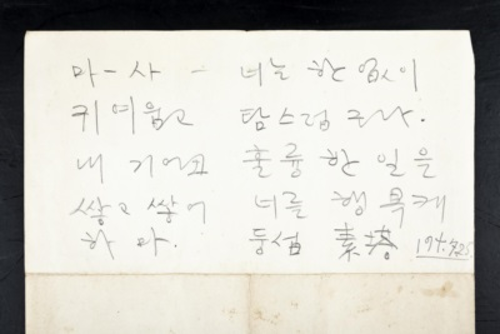 마-사- 너는 한 없이
귀여웁고 탐스럽구나.
내 기어코 훌륭한 일을
쌓고 쌓어 너를 행복케
하마. 둥섭 素塔